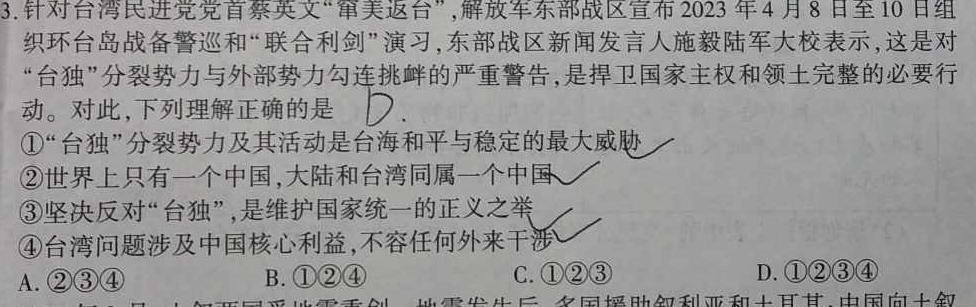 3.针对台湾民进党党首蔡英文“窜美返台”,解放军东部战区宣布2023年4月8日至10日组
织环台岛战备警巡和“联合利剑”演习,东部战区新闻发言人施毅陆军大校表示,这是对
“台独”分裂势力与外部势力勾连挑衅的严重警告,是捍卫国家主权和领土完整的必要行
动。对此,下列理解正确的是 D.
①“台独”分裂势力及其活动是台海和平与稳定的最大威胁
②世界上只有一个中国,大陆和台湾同属一个中国
③坚决反对“台独”,是维护国家统一的正义之举
④台湾问题涉及中国核心利益,不容任何外来干涉
A. ②③④ B. ①②④ C. ①②③ D. ①②③④
地震发生后,多国援助叙利亚和土耳其,中国向土叙